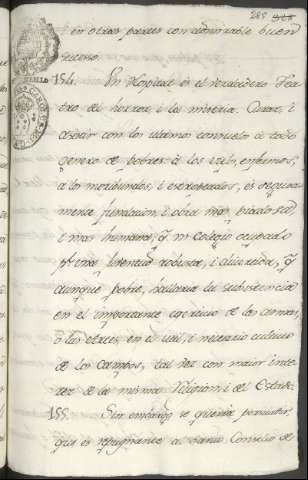 285
i en otras partes con admirable buen
suceso.
154. Un Hospital es el verdadero Tea-
tro del horror, i la miseria. Curar, i
asistir con los ultimos consuelos à todo
genero de pobres: à los viejos, enfermos,
a los moribundos, i estropeados, es segura-
mente fundacion, i obra mas piadosa,
i mas humana, q.e un Colegio ocupado
p.r una juventud robusta, i divertida, q.e
aunque pobre, hallaria la subsistencia
en el importante egercicio de las Armas,
o las Artes, en el util, i necesario cultivo
de los Campos, tal vez con maior inte-
res de la misma Religion, i del Estado.
155. Sin embargo se queria persuadir,
que es repugnante al Santo Concilio de